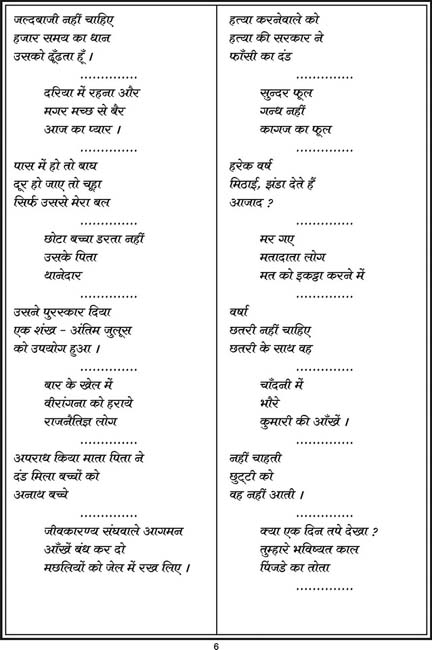 जल्दबाजी नहीं चाहिए
हजार समय का धान
उसको ढूँढता हूँ ।
..............
दरिया में रहना और
मगर मच्छ से बैर
आज का प्यार ।
..............
पास में हो तो बाघ
दूर हो जाए तो चूहा
सिर्फ उससे मेरा बल
..............
छोटा बच्चा डरता नहीं
उसके पिता
थानेदार
..............
उसने पुरस्कार दिया
एक शंख - अंतिम जुलूस
को उपयोग हुआ ।
..............
बार के खेल में
वीरांगना को हराये
राजनैतिज्ञ लोग
..............
अपराध किया माता पिता ने
दंड मिला बच्चों को
अनाथ बच्चे
..............
जीवकारण्य संघवाले आगमन
आँखें बंध कर दो
मछलियों को जेल में रख लिए ।
हत्या करनेवाले को
हत्या की सरकार ने
फाँसी का दंड
..............
सुन्दर फूल
गन्ध नहीं
कागज का फूल
..............
हरेक वर्ष
मिठाई, झंडा देते हैं
आजाद ?
..............
मर गए
मतादाता लोग
मत को इकट्ठा करने में
..............
वर्षा
छतरी नहीं चाहिए
छतरी के साथ वह
..............
चाँदनी में
भौरे
कुमारी की आँखें ।
..............
नहीं चाहती
छुट्टी को
वह नहीं आती ।
..............
क्या एक दिन तपे देखा ?
तुम्हारे भविष्यत काल
पिंजडे का तोता
..............
6